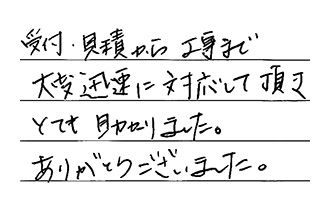 受付・見積から工事まで
大変迅速に対応して頂き
とても助かりました。
ありがとうございました。